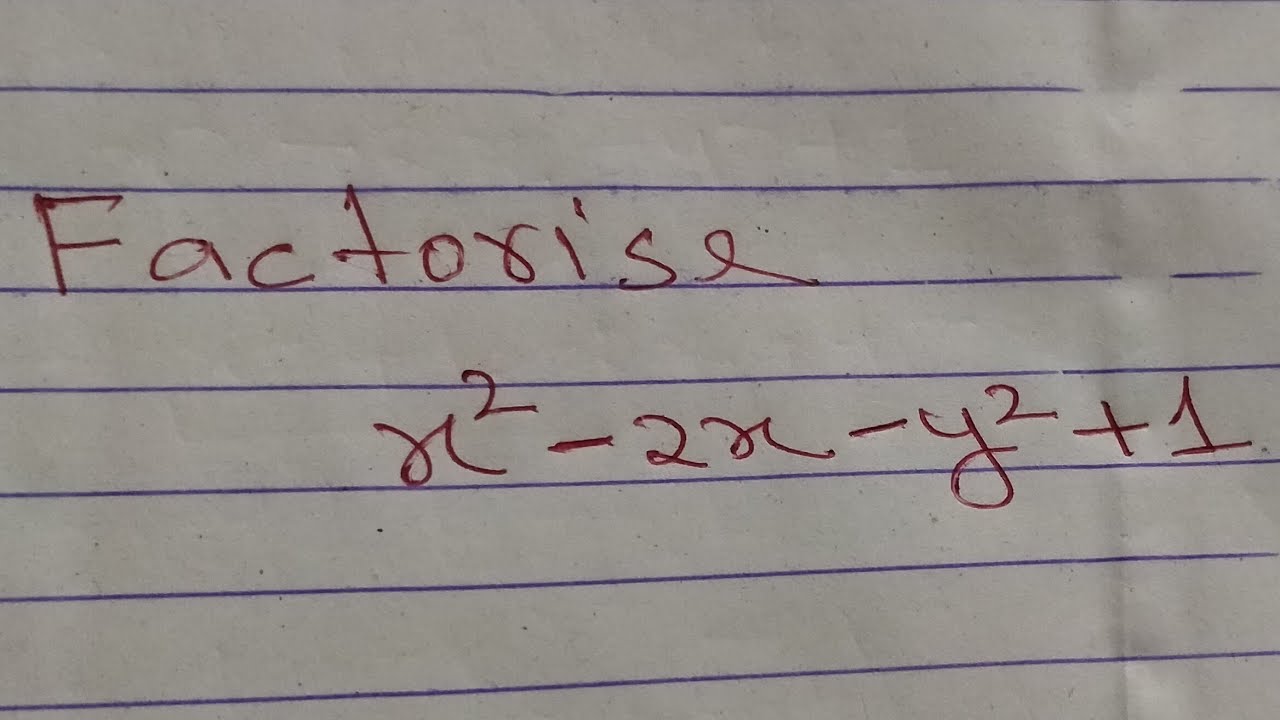 Factorise
x² - 2x - y² + 1